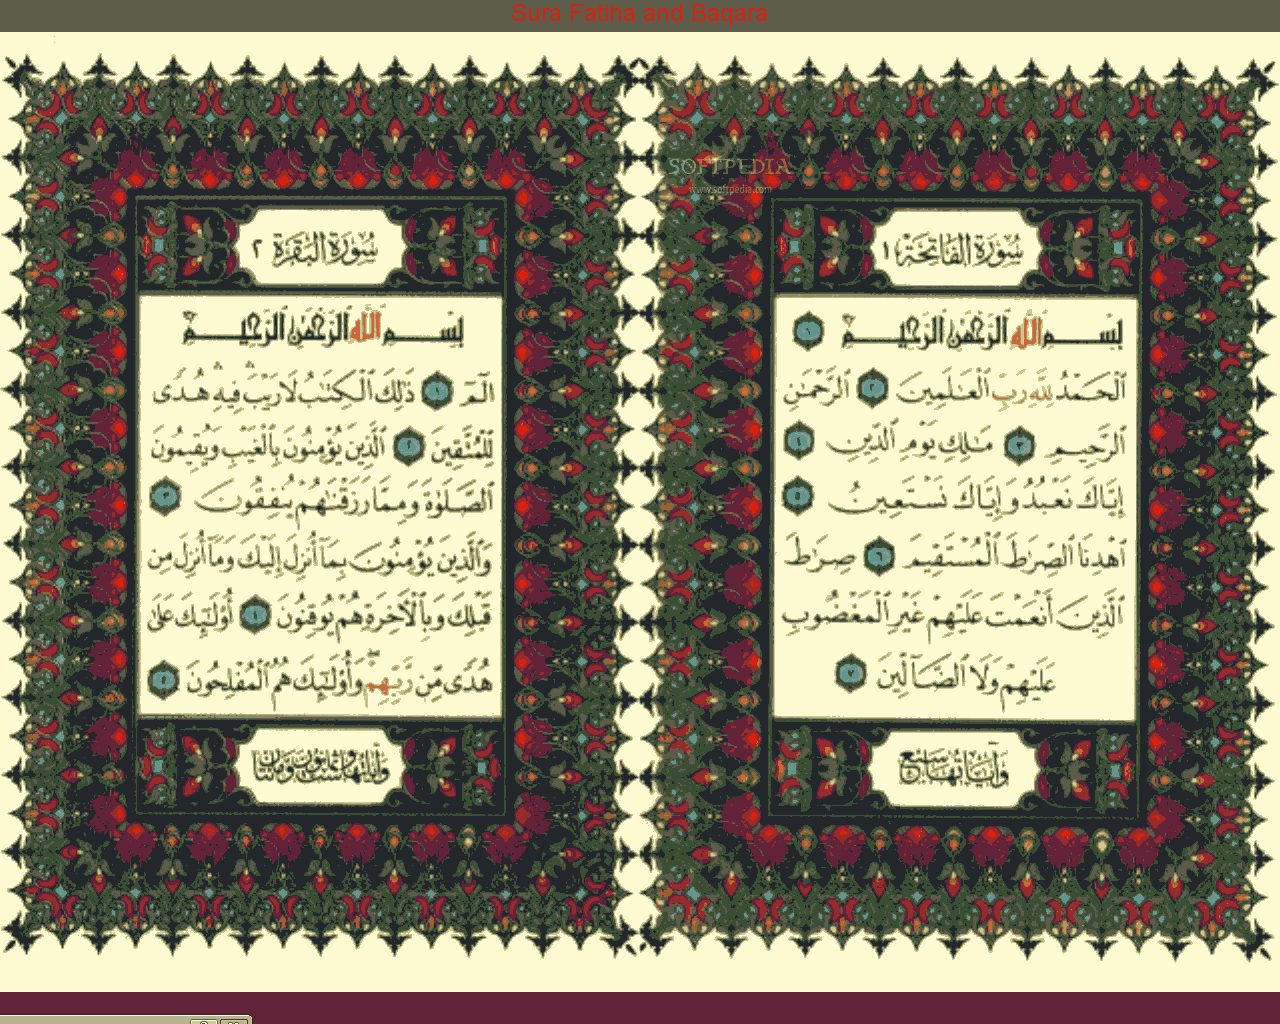 Sura Fatiha and Baqara
SOFTPEDIA
www.softpedia.com
سُورَةُ الفَاتِحَة ١
بِسْمِ ٱللَّهِ ٱلرَّحْمَٰنِ ٱلرَّحِيمِ ١
ٱلْحَمْدُ لِلَّهِ رَبِّ ٱلْعَٰلَمِينَ ٢ ٱلرَّحْمَٰنِ
ٱلرَّحِيمِ ٣ مَٰلِكِ يَوْمِ ٱلدِّينِ ٤
إِيَّاكَ نَعْبُدُ وَإِيَّاكَ نَسْتَعِينُ ٥
ٱهْدِنَا ٱلصِّرَٰطَ ٱلْمُسْتَقِيمَ ٦ صِرَٰطَ
ٱلَّذِينَ أَنْعَمْتَ عَلَيْهِمْ غَيْرِ ٱلْمَغْضُوبِ
عَلَيْهِمْ وَلَا ٱلضَّآلِّينَ ٧
وَآيَاتُهَا سَبْع
سُورَةُ البَقَرَة ٢
بِسْمِ ٱللَّهِ ٱلرَّحْمَٰنِ ٱلرَّحِيمِ
الٓمٓ ١ ذَٰلِكَ ٱلْكِتَٰبُ لَا رَيْبَ ۛ فِيهِ ۛ هُدًى
لِّلْمُتَّقِينَ ٢ ٱلَّذِينَ يُؤْمِنُونَ بِٱلْغَيْبِ وَيُقِيمُونَ
ٱلصَّلَوٰةَ وَمِمَّا رَزَقْنَٰهُمْ يُنفِقُونَ ٣
وَٱلَّذِينَ يُؤْمِنُونَ بِمَآ أُنزِلَ إِلَيْكَ وَمَآ أُنزِلَ مِن
قَبْلِكَ وَبِٱلْءَاخِرَةِ هُمْ يُوقِنُونَ ٤ أُو۟لَٰٓئِكَ عَلَىٰ
هُدًى مِّن رَّبِّهِمْ ۖ وَأُو۟لَٰٓئِكَ هُمُ ٱلْمُفْلِحُونَ ٥
وَآيَاتُهَا سِتٌّ وَثَمَانُونَ وَمِائَتَانِ